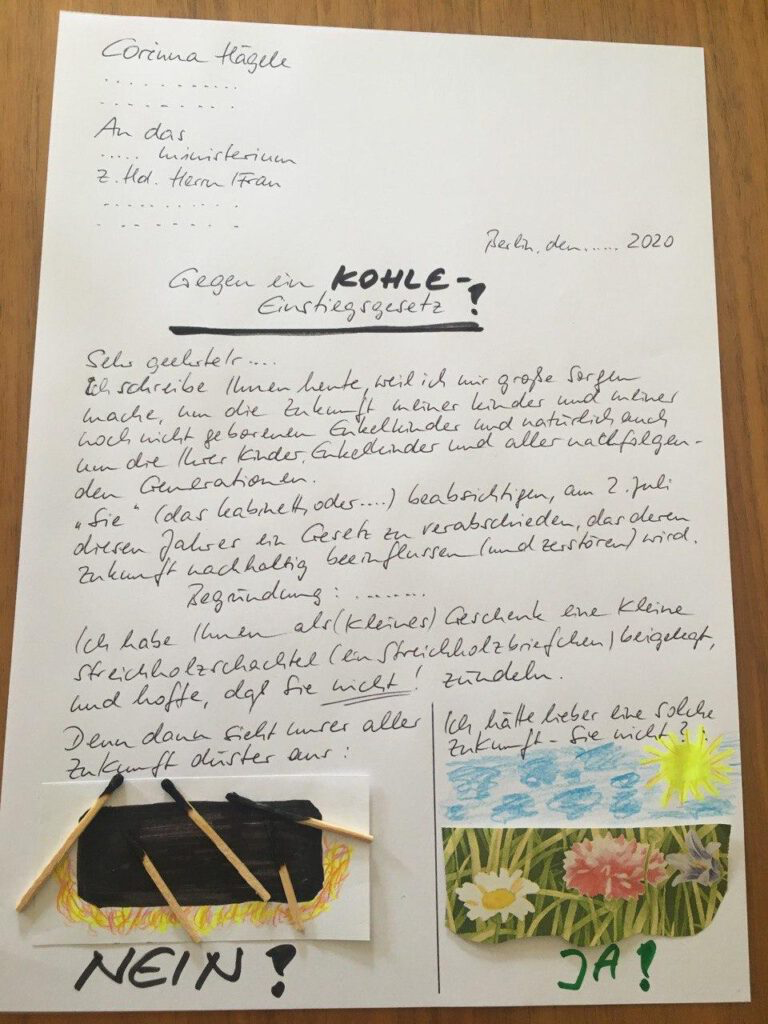 Corinna Hägele
. . . . . . . . . . . .
. . . . . . . . . .
An das
..... ministerium
z. Hd. Herrn / Frau
. . . . . . . . . .
. . . . . . . . . .
Berlin, den ...... 2020
Gegen ein KOHLE-
Einstiegsgesetz!
Sehr geehrte/r ....
Ich schreibe Ihnen heute, weil ich mir große Sorgen
mache, um die Zukunft meiner Kinder und meiner
noch nicht geborenen Enkelkinder und natürlich auch
um die Ihrer Kinder, Enkelkinder und aller nachfolgen-
den Generationen.
„Sie“ (das Kabinett, oder ....) beabsichtigen, am 2. Juli
diesen Jahres ein Gesetz zu verabschieden, das deren
Zukunft nachhaltig beeinflussen (und zerstören) wird.
Begründung: ........
Ich habe Ihnen als (kleines) Geschenk eine kleine
Streichholzschachtel (ein Streichholzbriefchen) beigelegt,
und hoffe, daß Sie nicht! zündeln.
Denn dann sieht unser aller
Zukunft düster aus:
Ich hätte lieber eine solche
Zukunft - Sie nicht?:
NEIN!
JA!